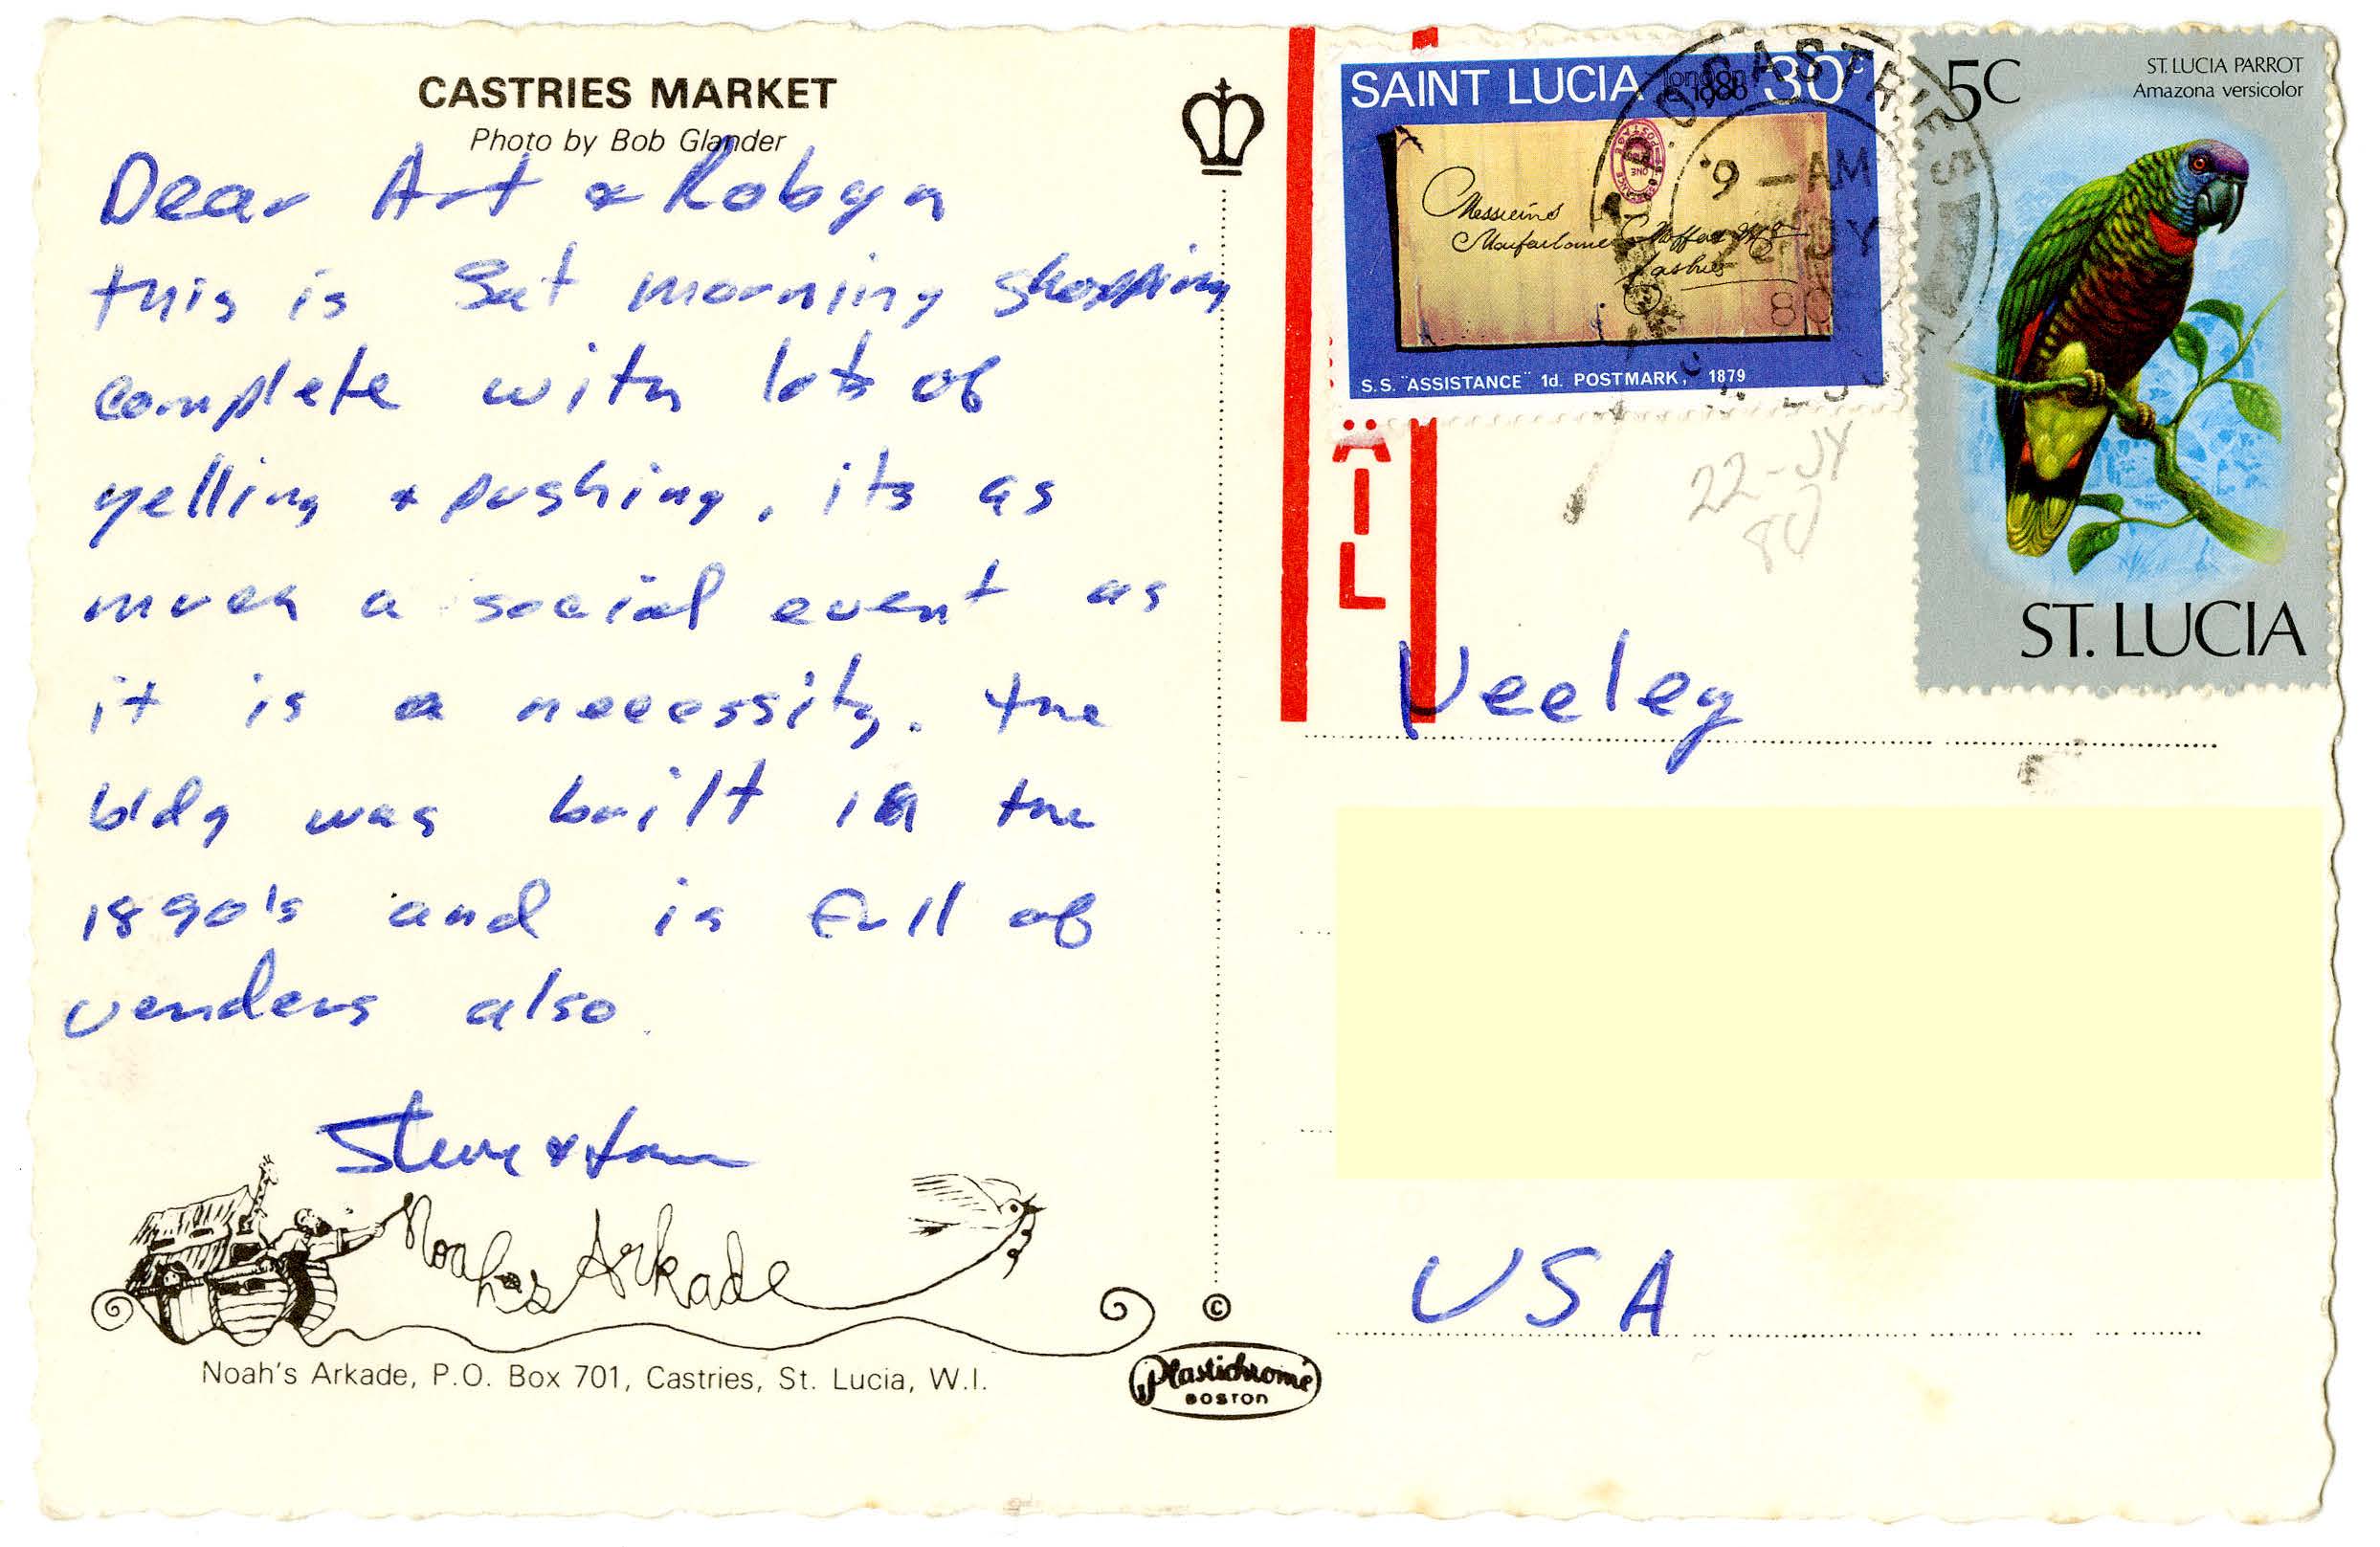 CASTRIES MARKET
Photo by Bob Glander
Dear Art & Robyn
this is Sat morning shopping
complete with lots of
yelling & pushing. its as
much a social event as
it is a necessity. the
bldg was built in the
1890's and is full of
venders also.
Steve &
Noah's Arkade
Noah's Arkade, P.O. Box 701, Castries, St. Lucia, W.I.
©
Plastichrome
BOSTON
SAINT LUCIA London 1980 30c
Messieurs
Macfarlane Moffat & Co
Castries
S.S. "ASSISTANCE" 1d. POSTMARK, 1879
CASTRIES
9 -AM
22 JY
80
5C
ST. LUCIA PARROT
Amazona versicolor
ST. LUCIA
ÄIL
22-JY
80
Veeley
USA